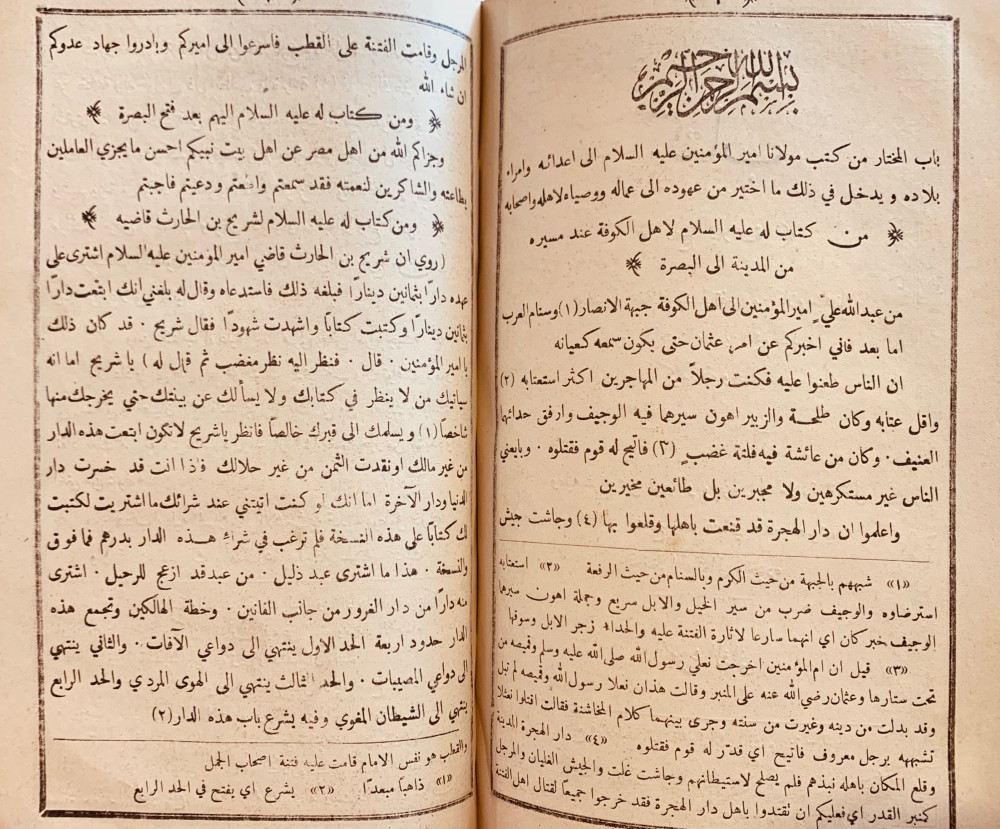 بسم الله الرحمن الرحيم
باب المختار من كتب مولانا امير المؤمنين عليه السلام الى اعدائه وامراء
بلاده ويدخل في ذلك ما اختير من عهوده الى عماله ووصياه لاهله واصحابه
من كتاب له عليه السلام لاهل الكوفة عند مسيره
من المدينة الى البصرة
من عبدالله عليّ امير المؤمنين الى اهل الكوفة جبهة الانصار (١) وسنام العرب
اما بعد فاني اخبركم عن امر عثمان حتى يكون سمعه كعيانه
ان الناس طعنوا عليه فكنت رجلاً من المهاجرين اكثر استعتابه (٢)
واقل عتابه وكان طلحة والزبير اهون سيرهما فيه الوجيف وارفق حدائهما
العنيف. وكان من عائشة فيه فلتة غضبٍ (٣) فاتيح له قوم فقتلوه. وبايعني
الناس غير مستكرهين ولا مجبرين بل طائعين مخيرين
واعلموا ان دار الهجرة قد قنعت باهلها وقلعوا بها (٤) وجاشت جيش
«١» شبههم بالجبهة من حيث الكرم وبالسنام من حيث الرفعة «٢» استعتابه
استرضاوه والوجيف ضرب من سير الخيل والابل سريع وجملة اهون سيرهما
الوجيف خبر كان اي انهما سارعا لاثارة الفتنة عليه والحداء زجر الابل وسوقها
«٣» قيل ان ام المؤمنين اخرجت نعلي رسول الله صلى الله عليه وسلم وقميصه من
تحت ستارها وعثمان رضي الله عنه على المنبر وقالت هذان نعلا رسول الله وقميصه لم تبل
وقد بدلت من دينه وغيرت من سنته وجرى بينهما كلام المخاشنة فقالت اقتلوا نعثلا
تشبهه برجل معروف فاتيح اي قدّر له قوم فقتلوه «٤» دار الهجرة المدينة
وقلع المكان باهله نبذهم فلم يصلح لاستيطانهم وجاشت غلت والجيش الغليان والمرجل
كنبر القدر اي فعليكم ان تقتدوا باهل دار الهجرة فقد خرجوا جميعًا لقتال اهل الفتنة
المرجل وقامت الفتنة على القطب فاسرعوا الى اميركم وبادروا جهاد عدوكم
ان شاء الله
ومن كتاب له عليه السلام اليهم بعد فتح البصرة
وجزاكم الله من اهل مصر عن اهل بيت نبيكم احسن ما يجزي العاملين
بطاعته والشاكرين لنعمته فقد سمعتم واطعتم ودعيتم فاجبتم
ومن كتاب له عليه السلام لشريح بن الحارث قاضيه
(روي ان شريح بن الحارث قاضي امير المؤمنين عليه السلام اشترى على
عهده دارًا بثمانين دينارًا فبلغه ذلك فاستدعاه وقال له بلغني انك ابتعت دارًا
بثمانين دينارًا وكتبت كتابًا واشهدت شهودًا فقال شريح. قد كان ذلك
يا امير المؤمنين. قال. فنظر اليه نظر مغضب ثم قال له) يا شريح اما انه
سياتيك من لا ينظر في كتابك ولا يسألك عن بينتك حتى يخرجك منها
شاخصًا (١) ويسلمك الى قبرك خالصًا فانظر يا شريح لا تكون ابتعت هذه الدار
من غير مالك او نقدت الثمن من غير حلالك فاذا انت قد خسرت دار
الدنيا ودار الآخرة اما انك لو كنت اتيتني عند شرائك ما اشتريت لكتبت
لك كتابًا على هذه النسخة فلم ترغب في شراء هذه الدار بدرهم فما فوق
والنسخة. هذا ما اشترى عبد ذليل. من عبد قد ازعج للرحيل. اشترى
منه دارًا من دار الغرور من جانب الفانين. وخطة الهالكين وتجمع هذه
الدار حدود اربعة الحد الاول ينتهي الى دواعي الآفات. والثاني ينتهي
الى دواعي المصيبات. والحد الثالث ينتهي الى الهوى المردي والحد الرابع
ينتهي الى الشيطان المغوي وفيه يشرع باب هذه الدار (٢)
والقطب هو نفس الامام قامت عليه فتنة اصحاب الجمل
«١» ذاهبًا مبعدًا «٢» يشرع اي يفتح في الحد الرابع